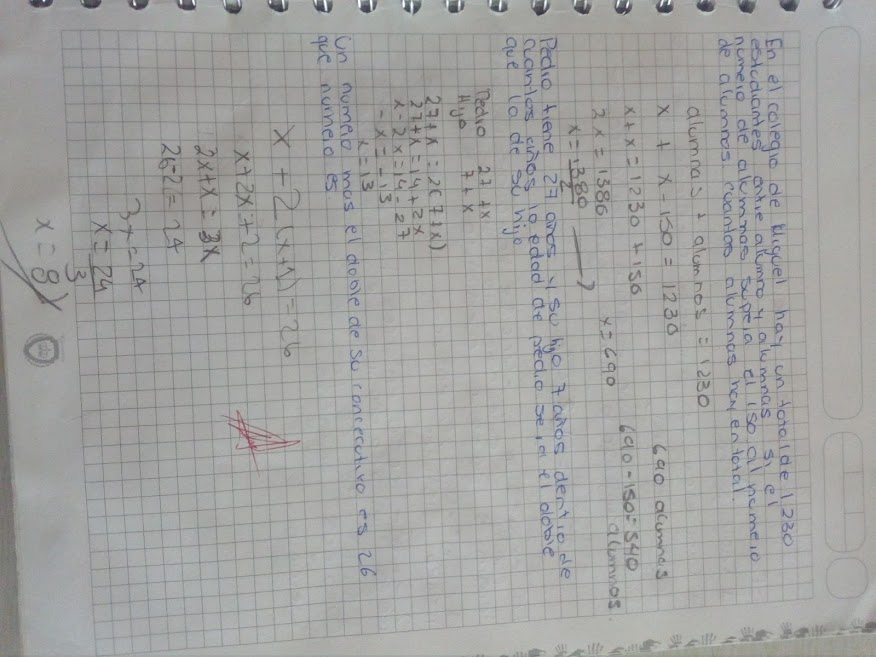 En el colegio de Miguel hay un total de 1,230
estudiantes entre alumno y alumnas si el
numero de alumnas supera el 150 al numero
de alumnos cuantas alumnas hay en total.
alumnas + alumnos = 1230
x + x - 150 = 1230
x + x = 1230 + 150
2x = 1380
x = 1380
2
x = 690
690 alumnas
690 - 150 = 540
alumnos.
Pedro tiene 27 años y su hijo 7 años dentro de
cuantos años la edad de pedro sera el doble
que la de su hijo
Pedro 27 + x
Hijo 7 + x
27 + x = 2(7 + x)
27 + x = 14 + 2x
x - 2x = 14 - 27
- x = - 13
x = 13
Un numero mas el doble de su consecutivo es 26
que numero es
x + 2(x+1) = 26
x + 2x + 2 = 26
2x + x = 3x
26 - 2 = 24
3x = 24
x = 24
3
x = 8